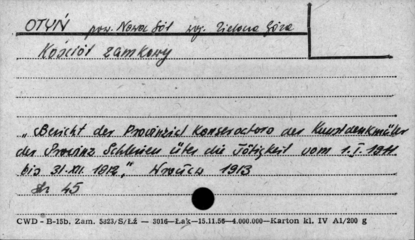 OTYŃ pow. Nowa Sól woj. Zielona Góra
Kościół zamkowy
"Bericht der Provinzial Konservators der Kunstdenkmäler
der Provinz Schlesien über die Tätigkeit vom 1.I.1911
bis 31.XII. 1912", Wrocław 1913
str 45
CWD - B-15b. Zam. 5323/S/Łź — 3016—Łsk—15.11.56—4.000.000—Karton kl. IV A1/200 g